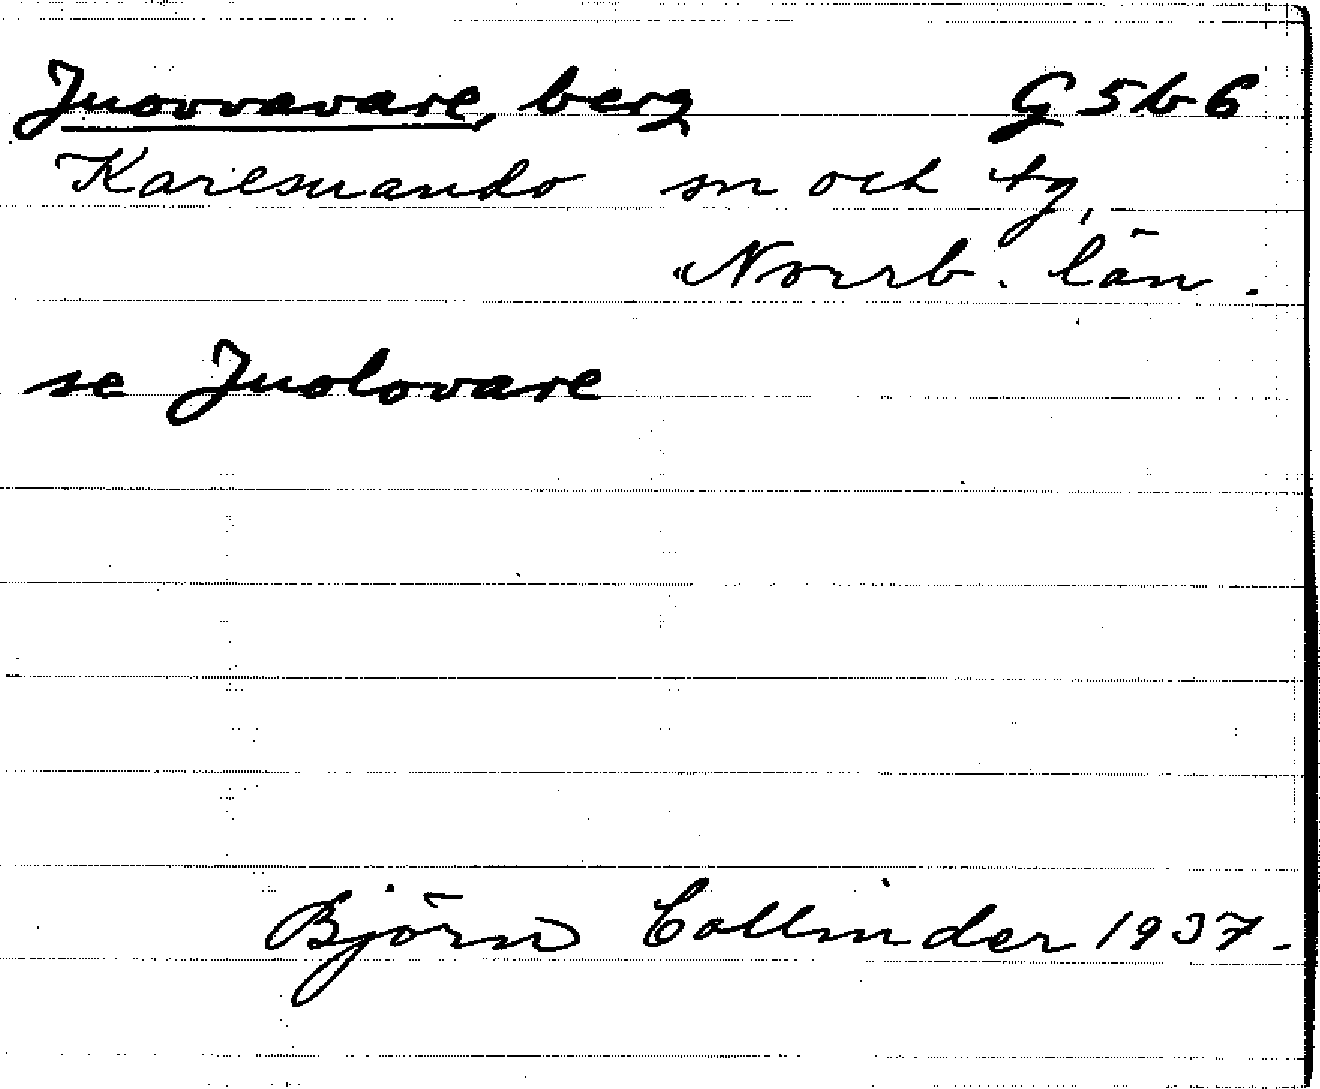 Juovvavare, berg G5b6
Karesuando sn och tg,
Norrb. län.
se Juolovare
Björn Collinder 1937.